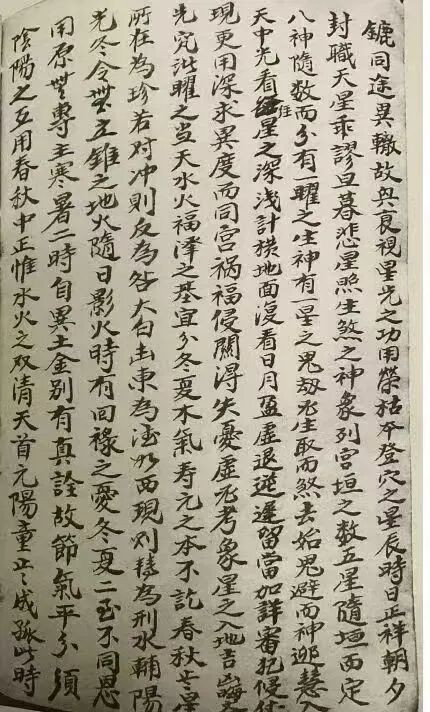 鑣同途異轍故與良視星光之功用榮枯卒登穴之星辰時日正祥朝夕
封職天星乖謬旦暮悲星照生煞之神象列宮垣之数五星隨垣而定
八神隨数而分有一曜之生神有一星之鬼劫死生取而煞去始鬼避而神邀慧入
天中先看住星之深浅計横地面復看日月盈虚退逆遲留當加詳審犯侵
現更用深求異度而同宫禍福侵關得失憂虚尤考象星之入地吉
先究此曜之当天水火福澤之基宜分冬夏木氣寿元之本不訖春秋
所在為珍若对冲則反為咎太白出東為德如西現则轉為刑水輔陽
光冬令無立錐之地火隨日影火時有回禄之憂冬夏二至不同恩
用原無專主寒暑二時自異土金别有真詮故節氣平分須
陰陽之互用春秋中正惟水火之双清天首元陽童正之成孤此時